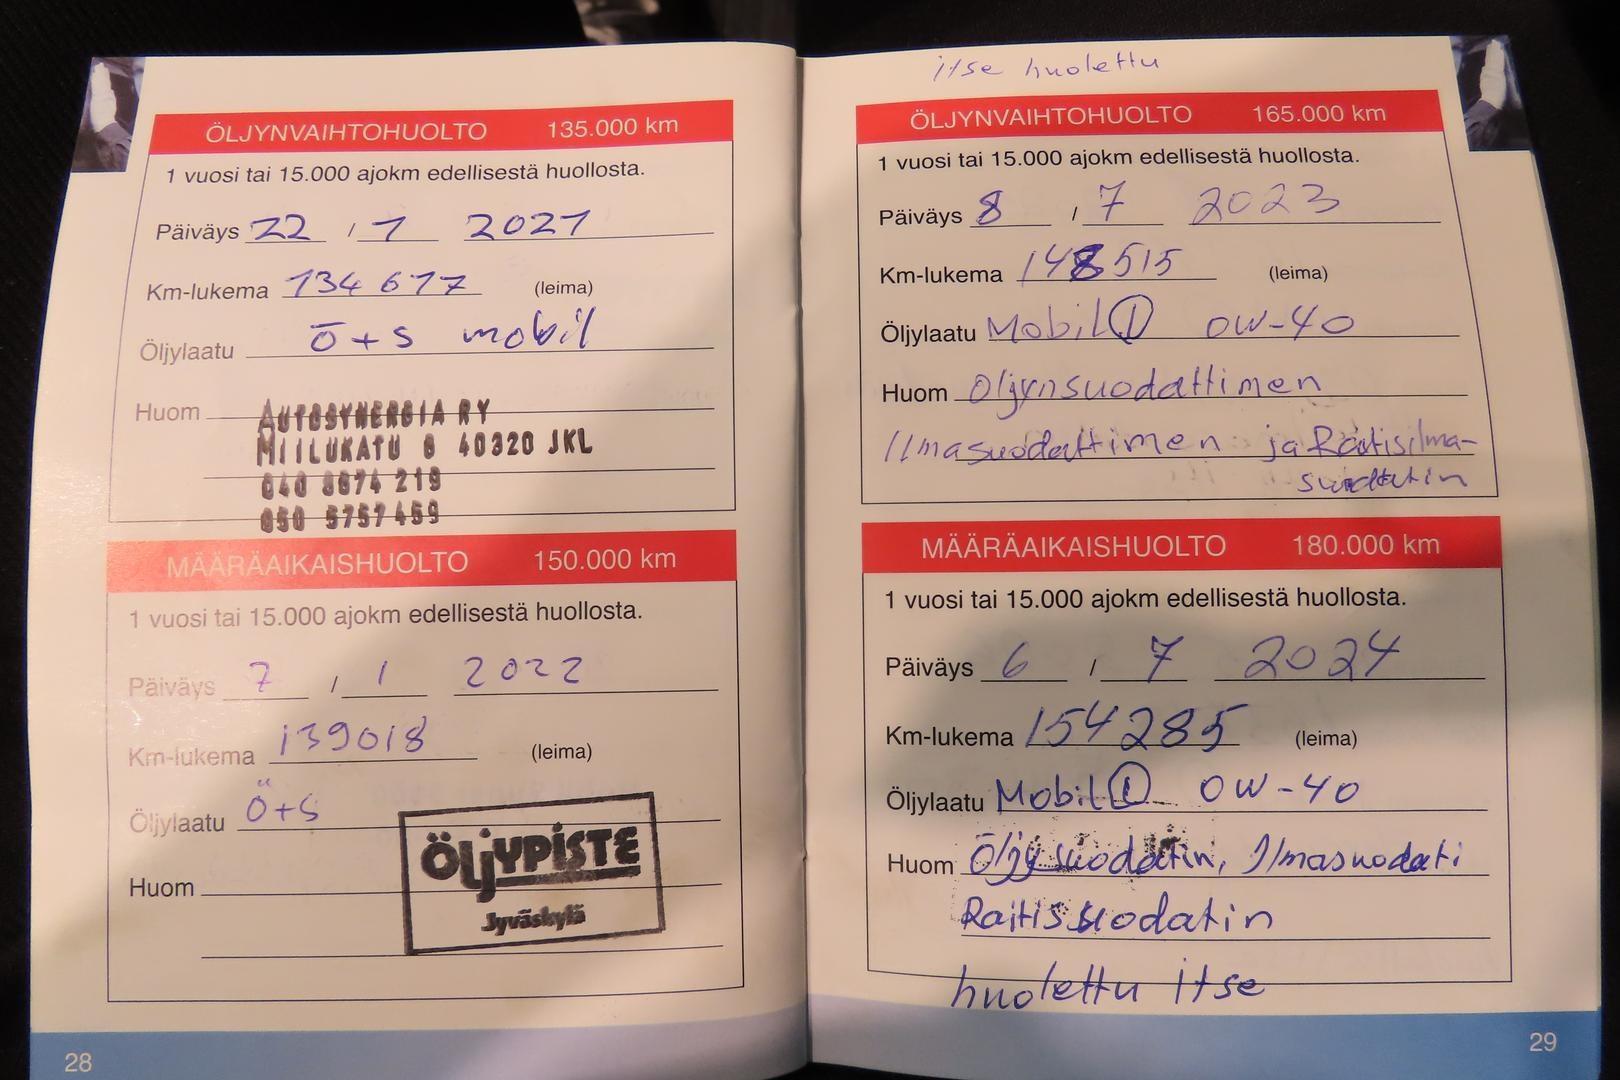 ÖLJYNVAIHTOHUOLTO 135.000 km
1 vuosi tai 15.000 ajokm edellisestä huollosta.
Päiväys 22 / 1 2021
Km-lukema 134 617 (leima)
Öljylaatu ö+s mobil
Huom
AUTOSYNERGIA RY
MIILUKATU 6 40320 JKL
040 8674 219
050 5757459
MÄÄRÄAIKAISHUOLTO 150.000 km
1 vuosi tai 15.000 ajokm edellisestä huollosta.
Päiväys 7 / 1 2022
Km-lukema 139018 (leima)
Öljylaatu Ö+S
Huom
ÖLJYPISTE
Jyväskylä
28
itse huolettu
ÖLJYNVAIHTOHUOLTO 165.000 km
1 vuosi tai 15.000 ajokm edellisestä huollosta.
Päiväys 8 / 7 2023
Km-lukema 148515 (leima)
Öljylaatu Mobil 1 0W-40
Huom Öljynsuodattimen
Ilmasuodattimen ja Raitisilma-
suodatin
MÄÄRÄAIKAISHUOLTO 180.000 km
1 vuosi tai 15.000 ajokm edellisestä huollosta.
Päiväys 6 / 7 2024
Km-lukema 154285 (leima)
Öljylaatu Mobil 1 0W-40
Huom Öljysuodatin, Ilmasuodati
Raitissuodatin
huolettu itse
29